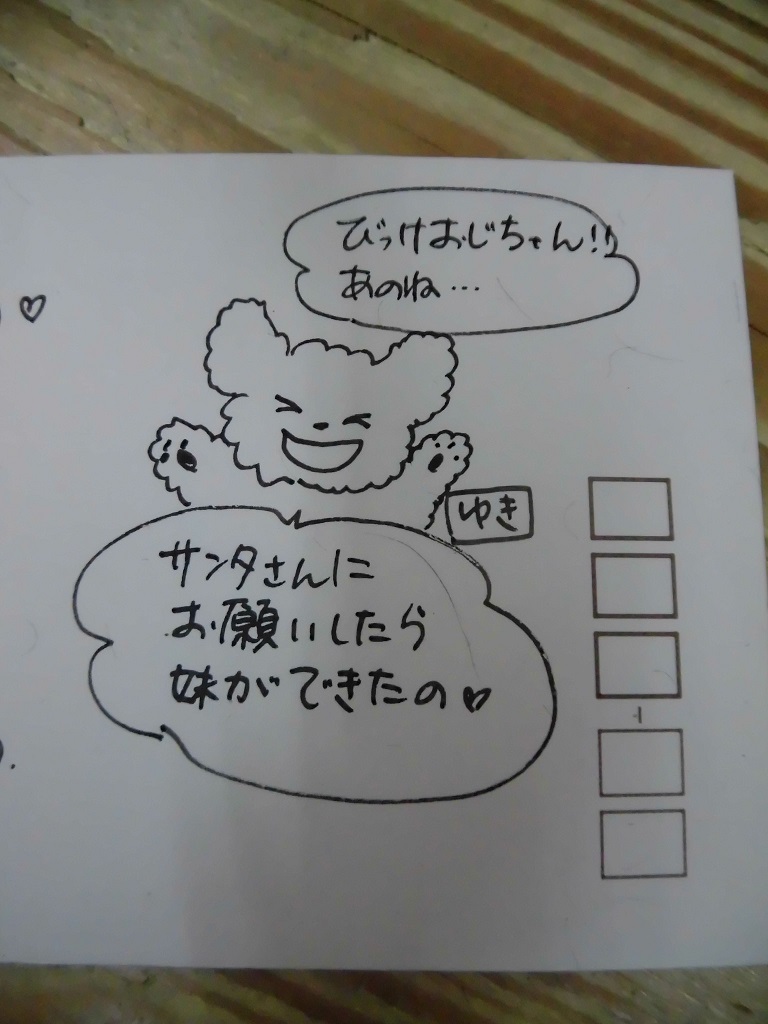 びっけおじちゃん!!
あのね…
ゆき
サンタさんに
お願いしたら
妹ができたの♥